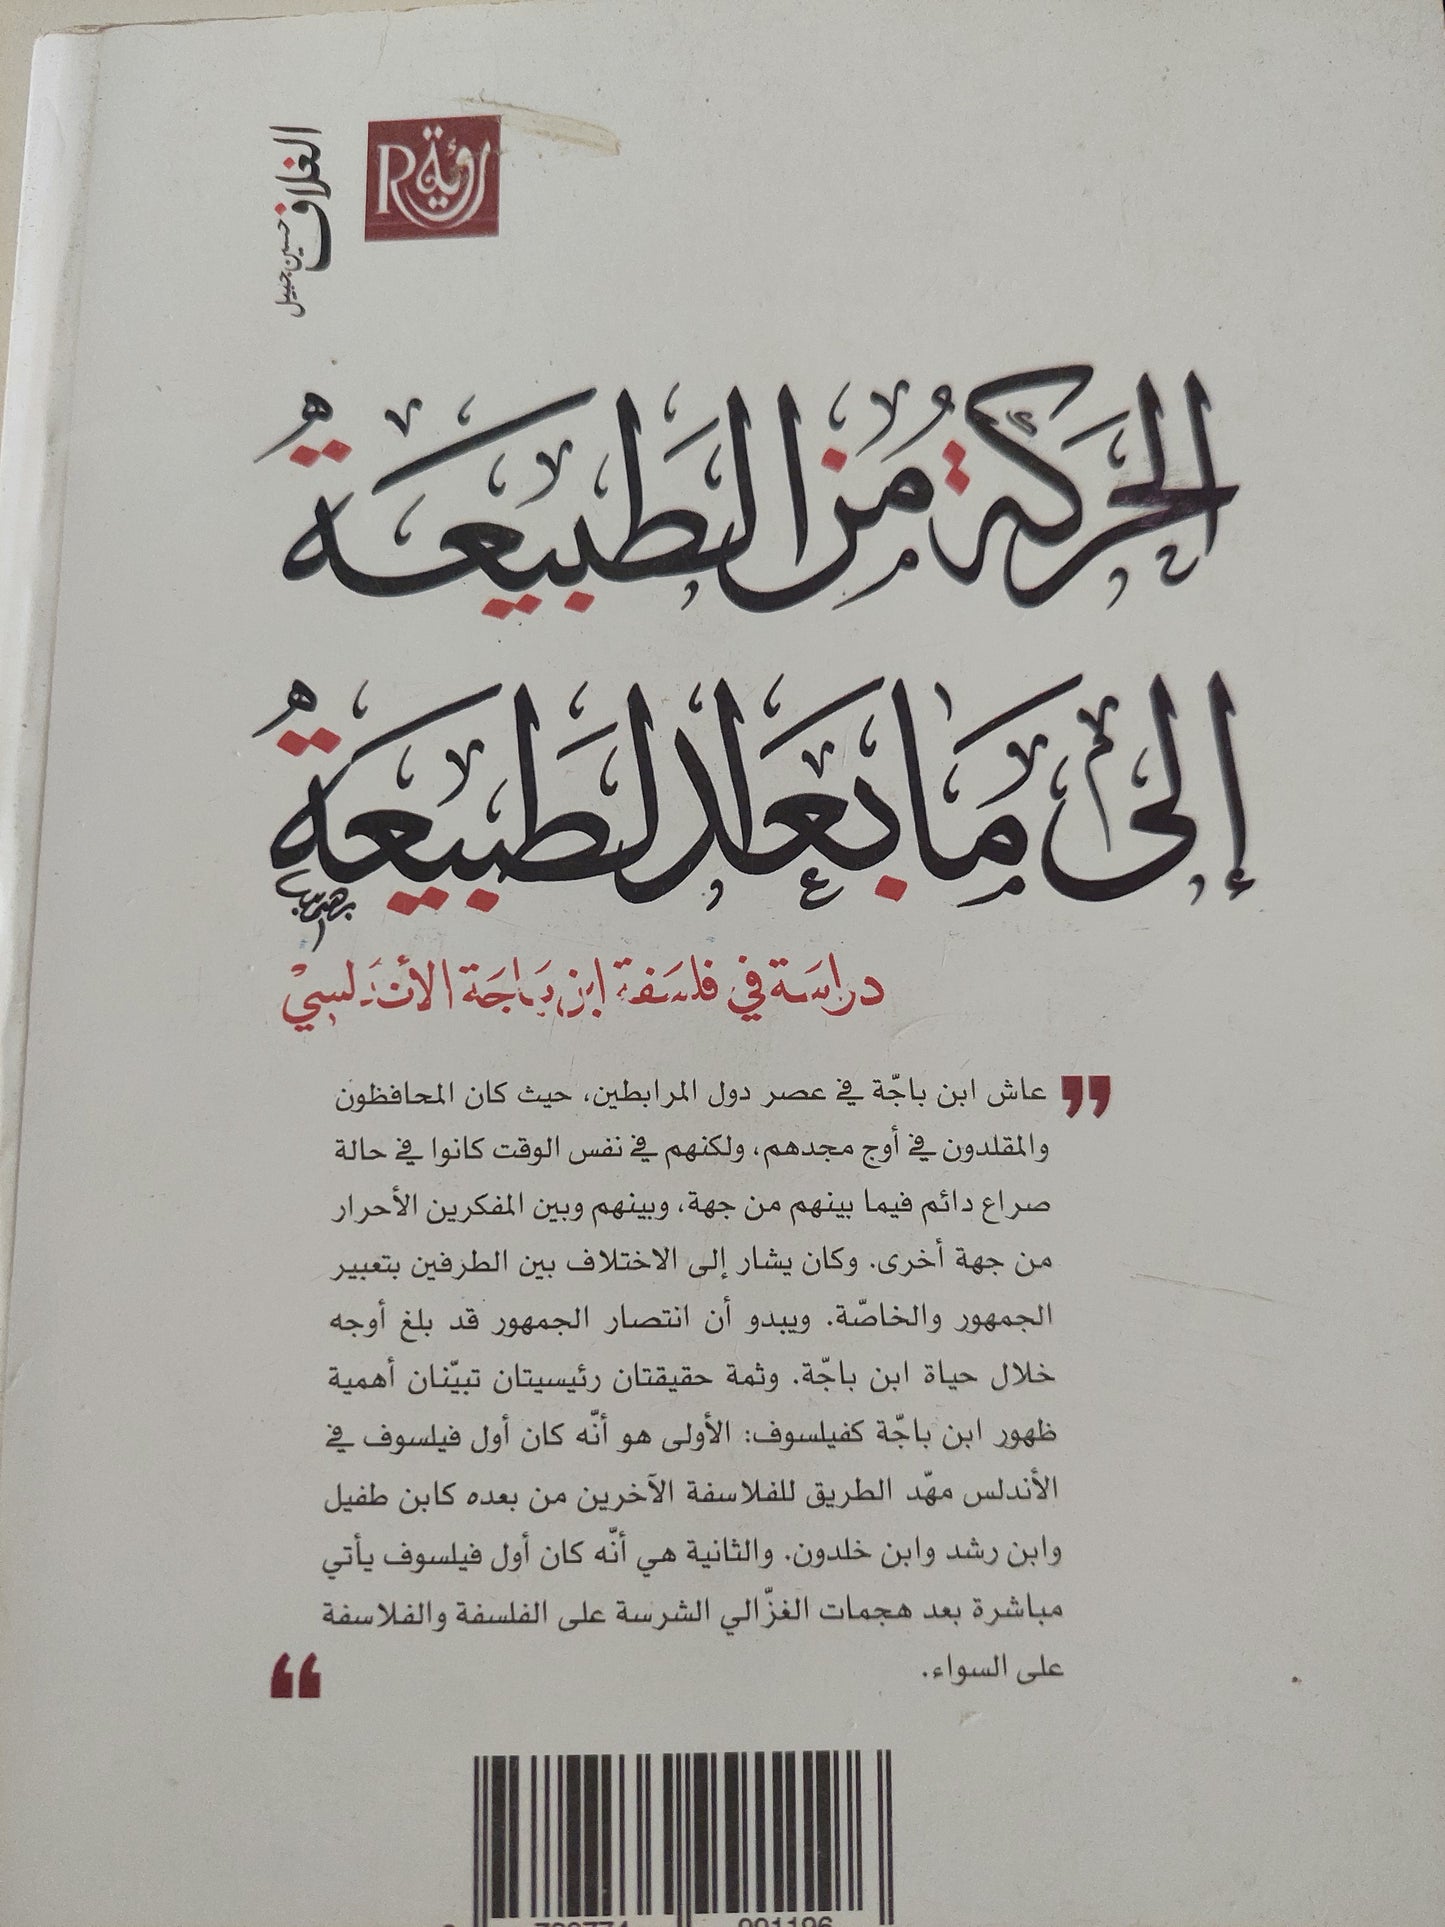 رؤية
R
الغلاف
حسين جبيل
الحركة من الطبيعة
إلى ما بعد الطبيعة
دراسة في فلسفة ابن باجة الأندلسي
عاش ابن باجّة في عصر دول المرابطين، حيث كان المحافظون
والمقلدون في أوج مجدهم، ولكنهم في نفس الوقت كانوا في حالة
صراع دائم فيما بينهم من جهة، وبينهم وبين المفكرين الأحرار
من جهة أخرى. وكان يشار إلى الاختلاف بين الطرفين بتعبير
الجمهور والخاصّة. ويبدو أن انتصار الجمهور قد بلغ أوجه
خلال حياة ابن باجّة. وثمة حقيقتان رئيسيتان تبيّنان أهمية
ظهور ابن باجّة كفيلسوف: الأولى هو أنّه كان أول فيلسوف في
الأندلس مهّد الطريق للفلاسفة الآخرين من بعده كابن طفيل
وابن رشد وابن خلدون. والثانية هي أنّه كان أول فيلسوف يأتي
مباشرة بعد هجمات الغزّالي الشرسة على الفلسفة والفلاسفة
على السواء.